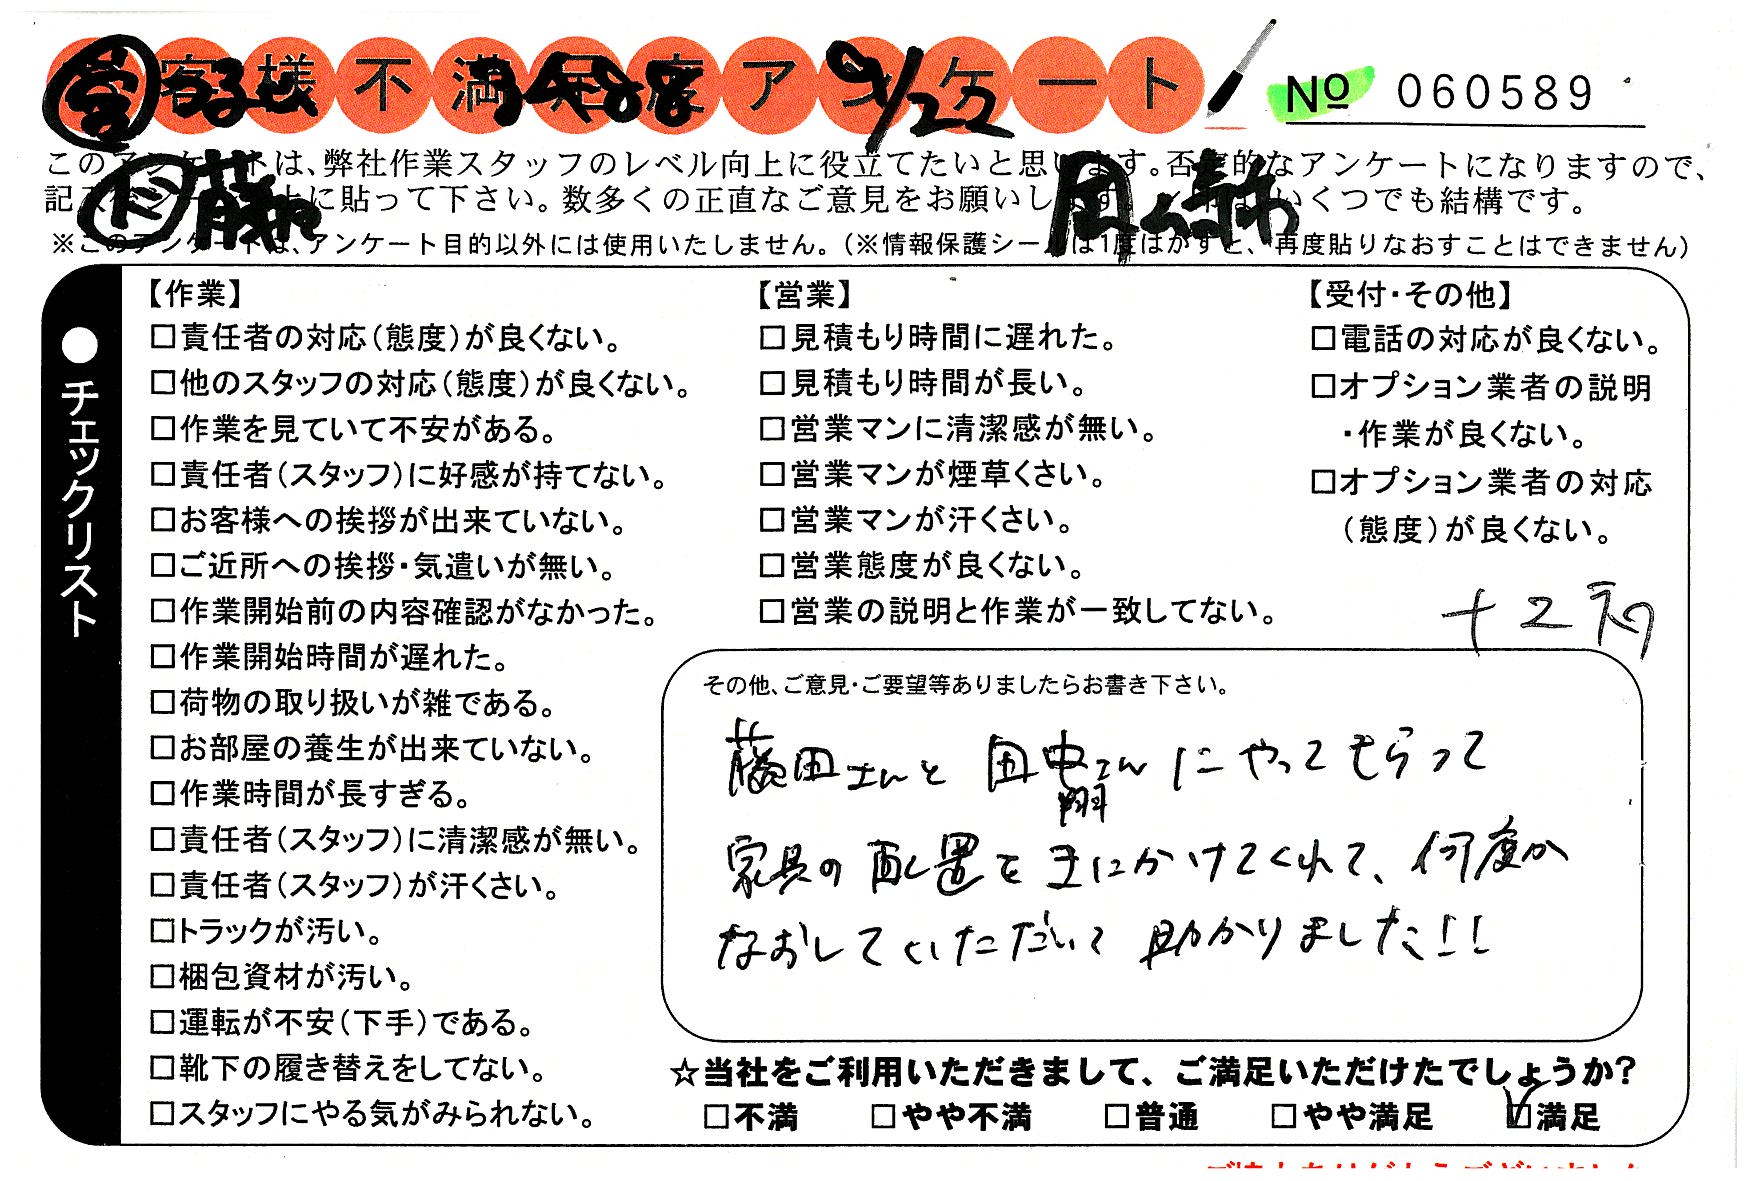 お客様不満足度アンケート
営
9/22
No 060589
このアンケートは、弊社作業スタッフのレベル向上に役立てたいと思います。否定的なアンケートになりますので、
に貼って下さい。数多くの正直なご意見をお願いします。いくつでも結構です。
※このアンケートは、アンケート目的以外には使用いたしません。(※情報保護シールは1度はがすと、再度貼りなおすことはできません)
●チェックリスト
【作業】
□責任者の対応(態度)が良くない。
□他のスタッフの対応(態度)が良くない。
□作業を見ていて不安がある。
□責任者(スタッフ)に好感が持てない。
□お客様への挨拶が出来ていない。
□ご近所への挨拶・気遣いが無い。
□作業開始前の内容確認がなかった。
□作業開始時間が遅れた。
□荷物の取り扱いが雑である。
□お部屋の養生が出来ていない。
□作業時間が長すぎる。
□責任者(スタッフ)に清潔感が無い。
□責任者(スタッフ)が汗くさい。
□トラックが汚い。
□梱包資材が汚い。
□運転が不安(下手)である。
□靴下の履き替えをしてない。
□スタッフにやる気がみられない。
【営業】
□見積もり時間に遅れた。
□見積もり時間が長い。
□営業マンに清潔感が無い。
□営業マンが煙草くさい。
□営業マンが汗くさい。
□営業態度が良くない。
□営業の説明と作業が一致してない。
【受付・その他】
□電話の対応が良くない。
□オプション業者の説明
・作業が良くない。
□オプション業者の対応
(態度)が良くない。
その他、ご意見・ご要望等ありましたらお書き下さい。
藤田さんと田中さんにやってもらって
翔
家具の配置をきにかけてくれて、何度か
なおしていただいて助かりました!!
☆当社をご利用いただきまして、ご満足いただけたでしょうか?
□不満 □やや不満 □普通 □やや満足 ☑満足